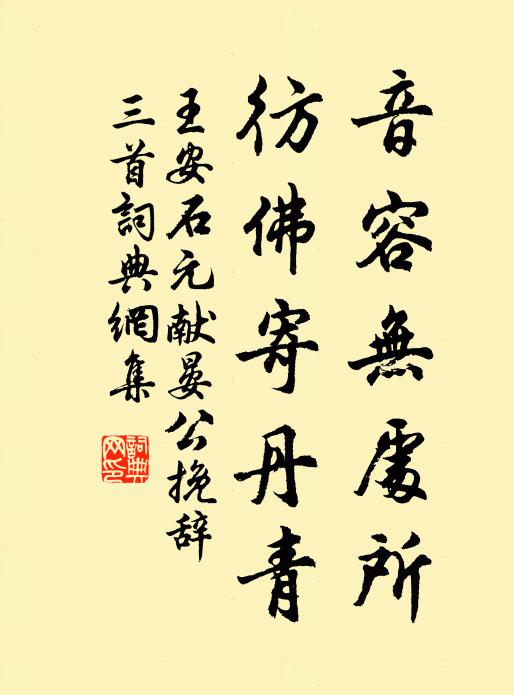 音容無處所
彷佛寄丹青
王安石元献晏公挽辞
三首詞典網集
詞典网印